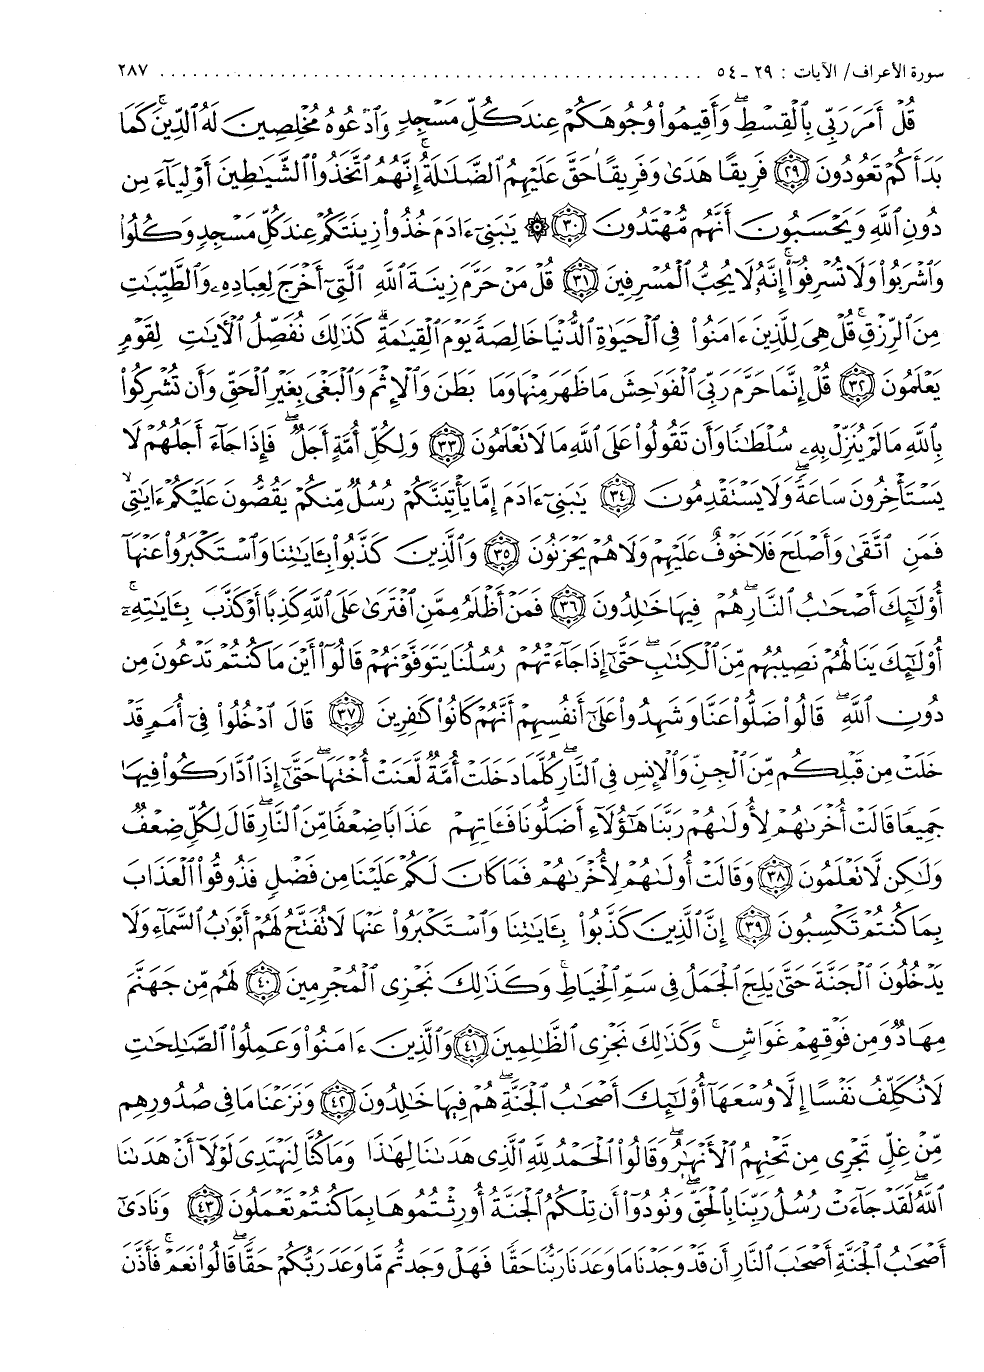 سورة الأعراف/ الآيات : ٢٩ - ٥٤ ........................................................ ٢٨٧
قُلۡ أَمَرَ رَبِّي بِٱلۡقِسۡطِۖ وَأَقِيمُواْ وُجُوهَكُمۡ عِندَ كُلِّ مَسۡجِدٖ وَٱدۡعُوهُ مُخۡلِصِينَ لَهُ ٱلدِّينَۚ كَمَا
بَدَأَكُمۡ تَعُودُونَ ﴿٢٩﴾ فَرِيقًا هَدَىٰ وَفَرِيقًا حَقَّ عَلَيۡهِمُ ٱلضَّلَٰلَةُۚ إِنَّهُمُ ٱتَّخَذُواْ ٱلشَّيَٰطِينَ أَوۡلِيَآءَ مِن
دُونِ ٱللَّهِ وَيَحۡسَبُونَ أَنَّهُم مُّهۡتَدُونَ ﴿٣٠﴾ ۞ يَٰبَنِيٓ ءَادَمَ خُذُواْ زِينَتَكُمۡ عِندَ كُلِّ مَسۡجِدٖ وَكُلُواْ
وَٱشۡرَبُواْ وَلَا تُسۡرِفُوٓاْۚ إِنَّهُۥ لَا يُحِبُّ ٱلۡمُسۡرِفِينَ ﴿٣١﴾ قُلۡ مَنۡ حَرَّمَ زِينَةَ ٱللَّهِ ٱلَّتِيٓ أَخۡرَجَ لِعِبَادِهِۦ وَٱلطَّيِّبَٰتِ
مِنَ ٱلرِّزۡقِۚ قُلۡ هِيَ لِلَّذِينَ ءَامَنُواْ فِي ٱلۡحَيَوٰةِ ٱلدُّنۡيَا خَالِصَةٗ يَوۡمَ ٱلۡقِيَٰمَةِۗ كَذَٰلِكَ نُفَصِّلُ ٱلۡأٓيَٰتِ لِقَوۡمٖ
يَعۡلَمُونَ ﴿٣٢﴾ قُلۡ إِنَّمَا حَرَّمَ رَبِّيَ ٱلۡفَوَٰحِشَ مَا ظَهَرَ مِنۡهَا وَمَا بَطَنَ وَٱلۡإِثۡمَ وَٱلۡبَغۡيَ بِغَيۡرِ ٱلۡحَقِّ وَأَن تُشۡرِكُواْ
بِٱللَّهِ مَا لَمۡ يُنَزِّلۡ بِهِۦ سُلۡطَٰنٗا وَأَن تَقُولُواْ عَلَى ٱللَّهِ مَا لَا تَعۡلَمُونَ ﴿٣٣﴾ وَلِكُلِّ أُمَّةٍ أَجَلٞۖ فَإِذَا جَآءَ أَجَلُهُمۡ لَا
يَسۡتَأۡخِرُونَ سَاعَةٗ وَلَا يَسۡتَقۡدِمُونَ ﴿٣٤﴾ يَٰبَنِيٓ ءَادَمَ إِمَّا يَأۡتِيَنَّكُمۡ رُسُلٞ مِّنكُمۡ يَقُصُّونَ عَلَيۡكُمۡ ءَايَٰتِي
فَمَنِ ٱتَّقَىٰ وَأَصۡلَحَ فَلَا خَوۡفٌ عَلَيۡهِمۡ وَلَا هُمۡ يَحۡزَنُونَ ﴿٣٥﴾ وَٱلَّذِينَ كَذَّبُواْ بِـَٔايَٰتِنَا وَٱسۡتَكۡبَرُواْ عَنۡهَآ
أُوْلَٰٓئِكَ أَصۡحَٰبُ ٱلنَّارِۖ هُمۡ فِيهَا خَٰلِدُونَ ﴿٣٦﴾ فَمَنۡ أَظۡلَمُ مِمَّنِ ٱفۡتَرَىٰ عَلَى ٱللَّهِ كَذِبًا أَوۡ كَذَّبَ بِـَٔايَٰتِهِۦٓۚ
أُوْلَٰٓئِكَ يَنَالُهُمۡ نَصِيبُهُم مِّنَ ٱلۡكِتَٰبِۖ حَتَّىٰٓ إِذَا جَآءَتۡهُمۡ رُسُلُنَا يَتَوَفَّوۡنَهُمۡ قَالُوٓاْ أَيۡنَ مَا كُنتُمۡ تَدۡعُونَ مِن
دُونِ ٱللَّهِۖ قَالُواْ ضَلُّواْ عَنَّا وَشَهِدُواْ عَلَىٰٓ أَنفُسِهِمۡ أَنَّهُمۡ كَانُواْ كَٰفِرِينَ ﴿٣٧﴾ قَالَ ٱدۡخُلُواْ فِيٓ أُمَمٖ قَدۡ
خَلَتۡ مِن قَبۡلِكُم مِّنَ ٱلۡجِنِّ وَٱلۡإِنسِ فِي ٱلنَّارِۖ كُلَّمَا دَخَلَتۡ أُمَّةٞ لَّعَنَتۡ أُخۡتَهَاۖ حَتَّىٰٓ إِذَا ٱدَّارَكُواْ فِيهَا
جَمِيعٗا قَالَتۡ أُخۡرَىٰهُمۡ لِأُولَىٰهُمۡ رَبَّنَا هَٰٓؤُلَآءِ أَضَلُّونَا فَـَٔاتِهِمۡ عَذَابٗا ضِعۡفٗا مِّنَ ٱلنَّارِۖ قَالَ لِكُلّٖ ضِعۡفٞ
وَلَٰكِن لَّا تَعۡلَمُونَ ﴿٣٨﴾ وَقَالَتۡ أُولَىٰهُمۡ لِأُخۡرَىٰهُمۡ فَمَا كَانَ لَكُمۡ عَلَيۡنَا مِن فَضۡلٖ فَذُوقُواْ ٱلۡعَذَابَ
بِمَا كُنتُمۡ تَكۡسِبُونَ ﴿٣٩﴾ إِنَّ ٱلَّذِينَ كَذَّبُواْ بِـَٔايَٰتِنَا وَٱسۡتَكۡبَرُواْ عَنۡهَا لَا تُفَتَّحُ لَهُمۡ أَبۡوَٰبُ ٱلسَّمَآءِ وَلَا
يَدۡخُلُونَ ٱلۡجَنَّةَ حَتَّىٰ يَلِجَ ٱلۡجَمَلُ فِي سَمِّ ٱلۡخِيَاطِۚ وَكَذَٰلِكَ نَجۡزِي ٱلۡمُجۡرِمِينَ ﴿٤٠﴾ لَهُم مِّن جَهَنَّمَ
مِهَادٞ وَمِن فَوۡقِهِمۡ غَوَاشٖۚ وَكَذَٰلِكَ نَجۡزِي ٱلظَّٰلِمِينَ ﴿٤١﴾ وَٱلَّذِينَ ءَامَنُواْ وَعَمِلُواْ ٱلصَّٰلِحَٰتِ
لَا نُكَلِّفُ نَفۡسًا إِلَّا وُسۡعَهَآ أُوْلَٰٓئِكَ أَصۡحَٰبُ ٱلۡجَنَّةِۖ هُمۡ فِيهَا خَٰلِدُونَ ﴿٤٢﴾ وَنَزَعۡنَا مَا فِي صُدُورِهِم
مِّنۡ غِلّٖ تَجۡرِي مِن تَحۡتِهِمُ ٱلۡأَنۡهَٰرُۖ وَقَالُواْ ٱلۡحَمۡدُ لِلَّهِ ٱلَّذِي هَدَىٰنَا لِهَٰذَا وَمَا كُنَّا لِنَهۡتَدِيَ لَوۡلَآ أَنۡ هَدَىٰنَا
ٱللَّهُۖ لَقَدۡ جَآءَتۡ رُسُلُ رَبِّنَا بِٱلۡحَقِّۖ وَنُودُوٓاْ أَن تِلۡكُمُ ٱلۡجَنَّةُ أُورِثۡتُمُوهَا بِمَا كُنتُمۡ تَعۡمَلُونَ ﴿٤٣﴾ وَنَادَىٰٓ
أَصۡحَٰبُ ٱلۡجَنَّةِ أَصۡحَٰبَ ٱلنَّارِ أَن قَدۡ وَجَدۡنَا مَا وَعَدَنَا رَبُّنَا حَقّٗا فَهَلۡ وَجَدتُّم مَّا وَعَدَ رَبُّكُمۡ حَقّٗاۖ قَالُواْ نَعَمۡۚ فَأَذَّنَ